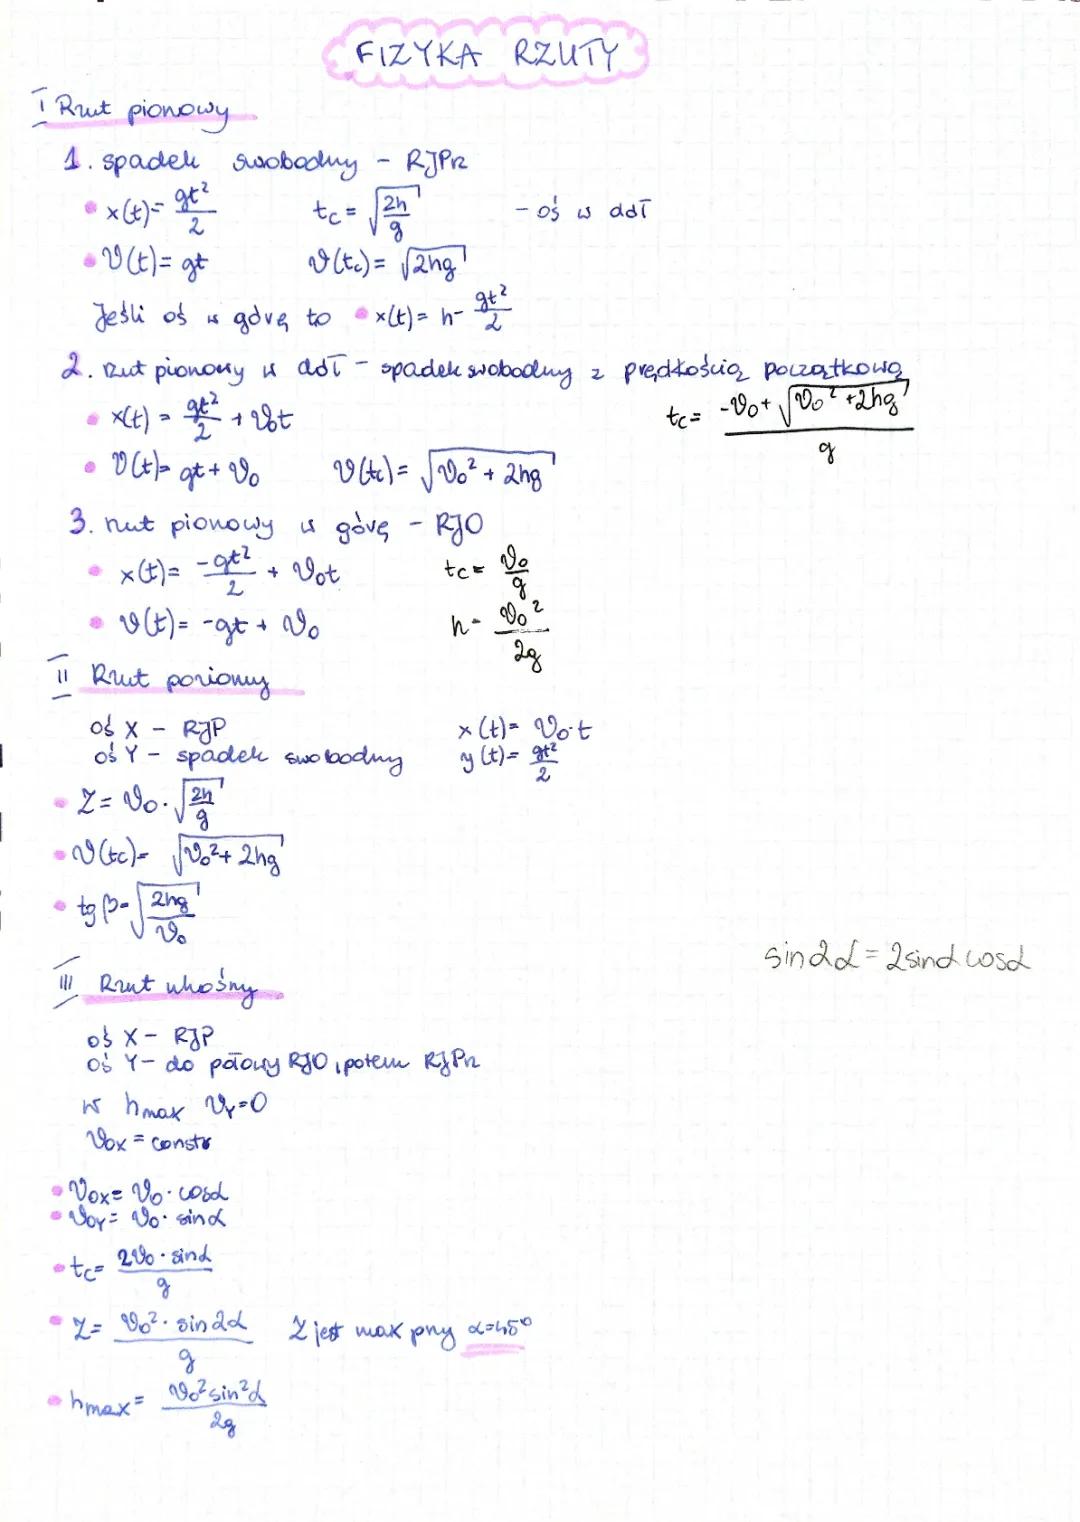 FIZYKA RZUTY
I Rzut pionowy
1. spadek swobodny - RJPrz
• x(t)= gt²/2 tc= √(2h/g) - oś w dół
• v(t)= gt v(tc)= √(2hg)
Jeśli oś w górę to • x(t)= h- gt²/2
2. rzut pionowy w dół - spadek swobodny z prędkością początkową
• x(t) = gt²/2 + v₀t tc= (-v₀+ √(v₀²+2hg))/g
• v(t)= gt + v₀ v(tc)= √(v₀² + 2hg)
3. rzut pionowy w górę - RJO
• x(t)= -gt²/2 + v₀t tc= v₀/g
• v(t)= -gt + v₀ h= v₀²/2g
II Rzut poziomy
oś X - RJP x(t)= v₀·t
oś Y - spadek swobodny y(t)= gt²/2
• Z= v₀·√(2h/g)
• v(tc)= √(v₀²+ 2hg)
• tgβ=√(2hg/v₀)
sin2α = 2sinα cosα
III Rzut ukośny
oś X - RJP
oś Y - do połowy RJO, potem RJPrz
w hmax vY=0
v₀x = const
• v₀x= v₀·cosα
• v₀Y= v₀·sinα
• tc= (2v₀·sinα)/g
• Z= (v₀²·sin2α)/g Z jest max przy α=45°
• hmax= (v₀²sin²α)/2g